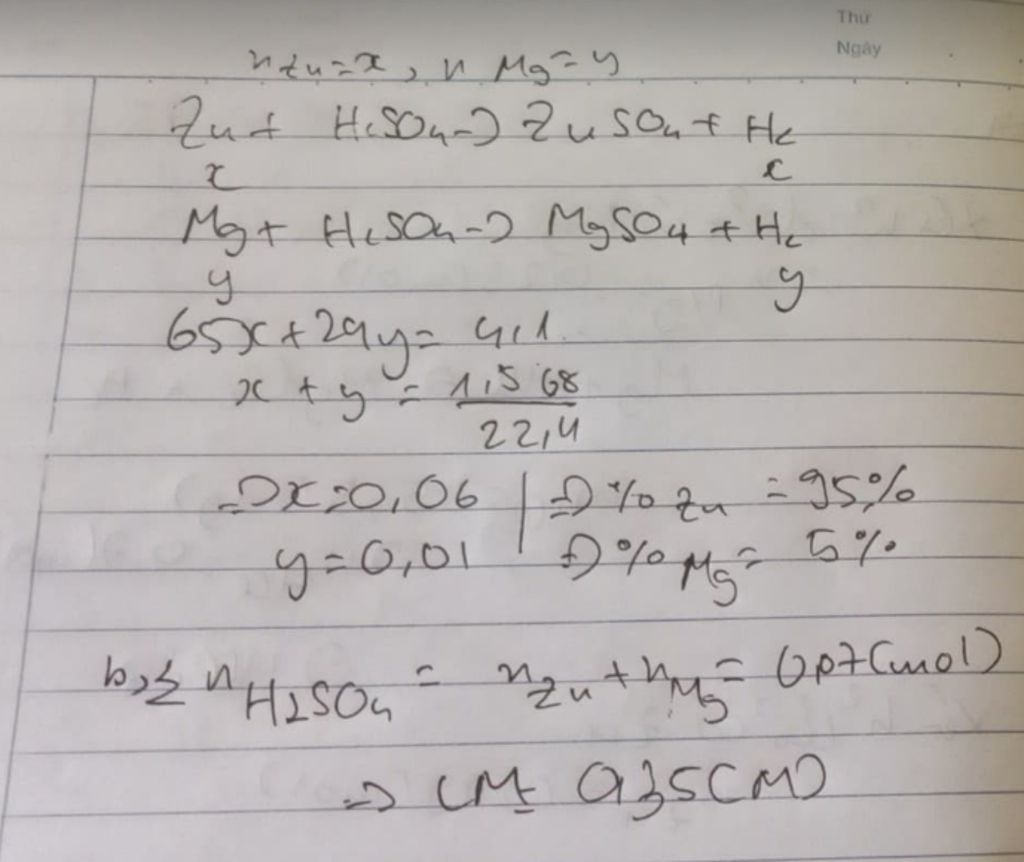 Thứ
Ngày
n Zn = x, n Mg = y
Zn + H2SO4 -> ZnSO4 + H2
x x
Mg + H2SO4 -> MgSO4 + H2
y y
65x + 24y = 4,1
x + y = 1,568 / 22,4
=> x = 0,06 | => % Zn = 95%
y = 0,01 => % Mg = 5%
b, Σ n H2SO4 = n Zn + n Mg = 0,07 (mol)
=> CM = 0,35 (M)